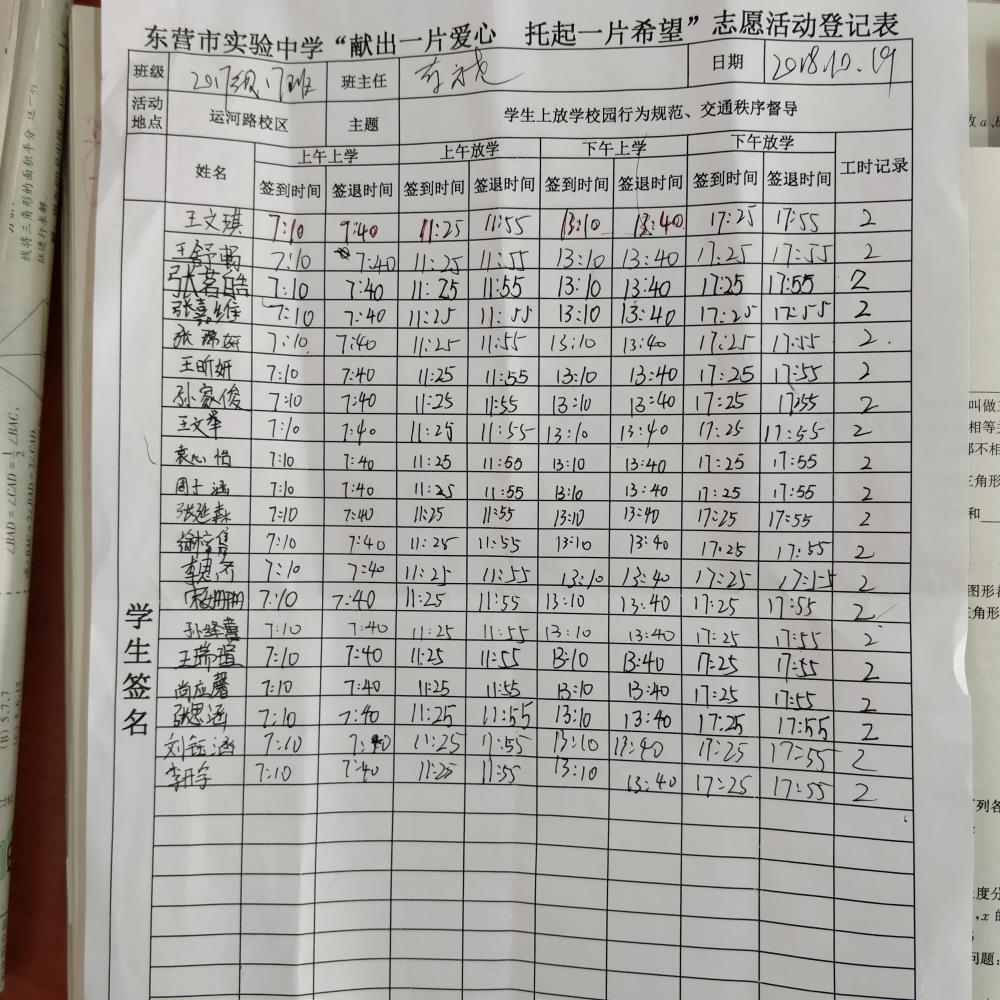 东营市实验中学“献出一片爱心 托起一片希望”志愿活动登记表
班级 2017级17班 班主任 日期 2018.10.19
活动地点 运河路校区 主题 学生上放学校园行为规范、交通秩序督导
姓名 上午上学 上午放学 下午上学 下午放学 工时记录
签到时间 签退时间 签到时间 签退时间 签到时间 签退时间 签到时间 签退时间
学生签名
王文琪 7:10 7:40 11:25 11:55 13:10 13:40 17:25 17:55 2
王舒畅 7:10 7:40 11:25 11:55 13:10 13:40 17:25 17:55 2
张茗皓 7:10 7:40 11:25 11:55 13:10 13:40 17:25 17:55 2
张嘉维 7:10 7:40 11:25 11:55 13:10 13:40 17:25 17:55 2
张 7:10 7:40 11:25 11:55 13:10 13:40 17:25 17:55 2
王昕妍 7:10 7:40 11:25 11:55 13:10 13:40 17:25 17:55 2
孙家俊 7:10 7:40 11:25 11:55 13:10 13:40 17:25 17:55 2
王文举 7:10 7:40 11:25 11:55 13:10 13:40 17:25 17:55 2
袁心怡 7:10 7:40 11:25 11:55 13:10 13:40 17:25 17:55 2
周子涵 7:10 7:40 11:25 11:55 13:10 13:40 17:25 17:55 2
张延森 7:10 7:40 11:25 11:55 13:10 13:40 17:25 17:55 2
7:10 7:40 11:25 11:55 13:10 13:40 17:25 17:55 2
李思齐 7:10 7:40 11:25 11:55 13:10 13:40 17:25 17:55 2
7:10 7:40 11:25 11:55 13:10 13:40 17:25 17:55 2
孙绎萱 7:10 7:40 11:25 11:55 13:10 13:40 17:25 17:55 2
王瑞瑄 7:10 7:40 11:25 11:55 13:10 13:40 17:25 17:55 2
尚应馨 7:10 7:40 11:25 11:55 13:10 13:40 17:25 17:55 2
张思涵 7:10 7:40 11:25 11:55 13:10 13:40 17:25 17:55 2
刘钰涵 7:10 7:40 11:25 11:55 13:10 13:40 17:25 17:55 2
李开宇 7:10 7:40 11:25 11:55 13:10 13:40 17:25 17:55 2